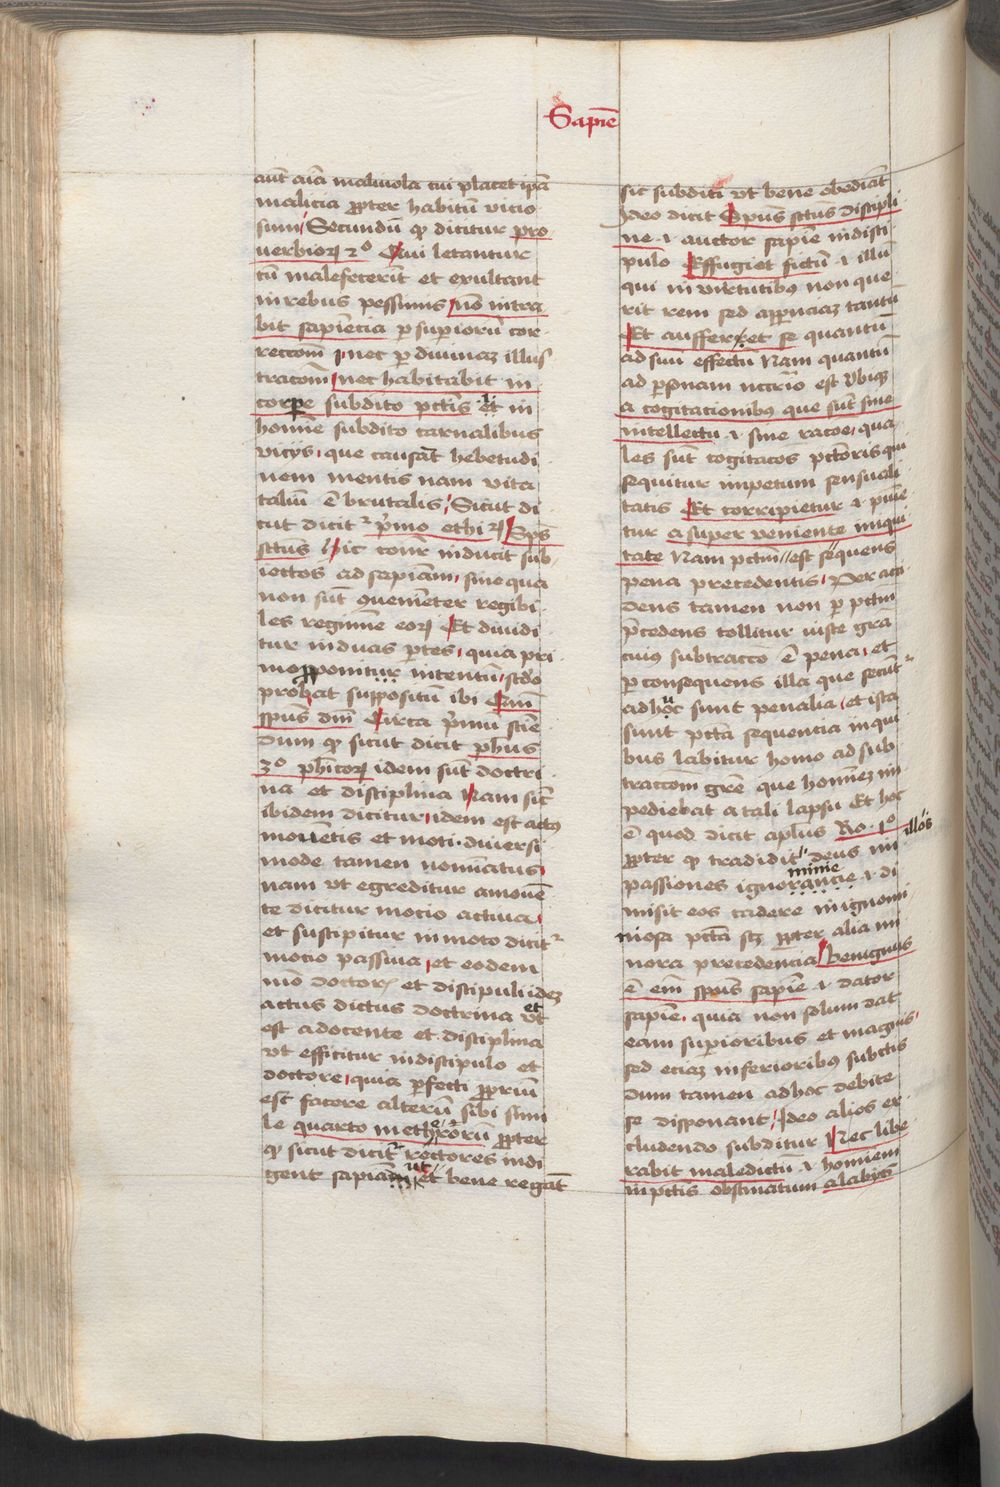 Sapie͞
aut͞ ai͞a maliuola cui placet ipa͞
malicia ꝓpter habitu͞ vicio
sum / Secundu͞ qꝫ dicitur pro
uerbioꝝ 2º Qui letantur
cu͞ malefecerit͞ et exultant
in rebus pessimis / no͞ intra
bit sapiencia ꝑ superioru͞ cor
reccom͞ i nec ꝑ diuinaꝫ illus
tracom͞ / nec habitabit in
corpe subdito pctis͞ et in
homine subdito carnalibus
vicijs · que causat͞ hebetudi
nem mentis nam vita
taliu͞ e͞ brutalis / Sicut di
cut dicit² p͛mo ethiꝝ / Sps͞
sctus͞ hic 
inducit sub
iectos ad sapiam͞ · sine qua
non su͞t ꝯuenienter regibi
les regimine eoꝝ Et diuidi
tur in duas ꝑtes · quia pri
mo ꝓponitur intentu͞ · scd͞o
probat suppositu͞ ibi Qm͞
spus͞ dni͞ Circa p͛mu͞ scie͞
dum qꝫ sicut dicit phus͞
3º phicoꝝ idem su͞t doctri
na et disciplina Nam sic͞
ibidem dicitur · idem est actꝰ
mouentis et moti · diuersi
mode tamen nominatus
nam vt egreditur a moue͞
te dicitur mocio actiua ·
et suscipitur in moto dicit²
mocio passiua · et eodem
mo͞ doctorꝭ et discipuli idꝫ
actus dictus doctrina vt et
est a docente et disciplina
vt efficitur in discipulo et
doctore · quia ꝑfecti ꝓpriu͞
est facere alteru͞ sibi simi
le quarto metheroru͞ ꝓpter
qꝫ sicut dicit² rectores indi
gent sapiam͞ ut et bene regat͞
sic subditi vt bene obediat͞
Ideo dicit Spus͞ sctus͞ discipli
ne · i · auctor sapie͞ in disci
pulo Effugiet fictu͞ · i · illu͞
qui in virtutibꝰ non que
rit rem sed apparenciaꝫ tantu͞
Et aufferet se quantu͞
ad suu͞ effectu͞ Nam quantu͞
ad ꝑsonam 
est Vbiqꝫ
a cogitacionibꝰ que su͞t sine
intellectu · i · sine racoe͞ · qua
les su͞t cogitacos͞ pctoris͞ qui
sequitur impetum sensuali
tatis Et corripietur · i · punie
tur a super veniente iniqui
tate Nam pctm͞ // est sequens
pena precedentis · Per acci
dens tamen non ꝑ pctm͞
p͛cedens tollitur iuste gra͞
cuius subtraccio e͞ pena · et
ꝑ consequens illa que secunt²
ad hoc sunt penalia · et ista
sunt pcta͞ sequencia in qui
bus labitur homo ad sub
traccom͞ gre͞ que homineꝫ im
pediebat a tali lapsu Et hoc
e͞ quod dicit aplus͞ Ro · 1º
ꝓpter qꝫ tradidit // deus in illos
passiones ignorancie minie · i · di
misit eos cadere in ignomi
niosa pcta͞ scꝫ ꝓpter alia mi
nora precedencia / Benignus
e͞ em͞ spus͞ sapie͞ · i · dator
sapie͞ · quia non solum dat
eam superioribus et magnis ·
sed eciaꝫ inferioribꝰ subditis
dum tamen ad hoc debite
se disponant / Ideo alios ex
cludendo subditur Nec libe
rabit maledictu͞ · i · hominem
in pctis͞ obstinatum a labijs